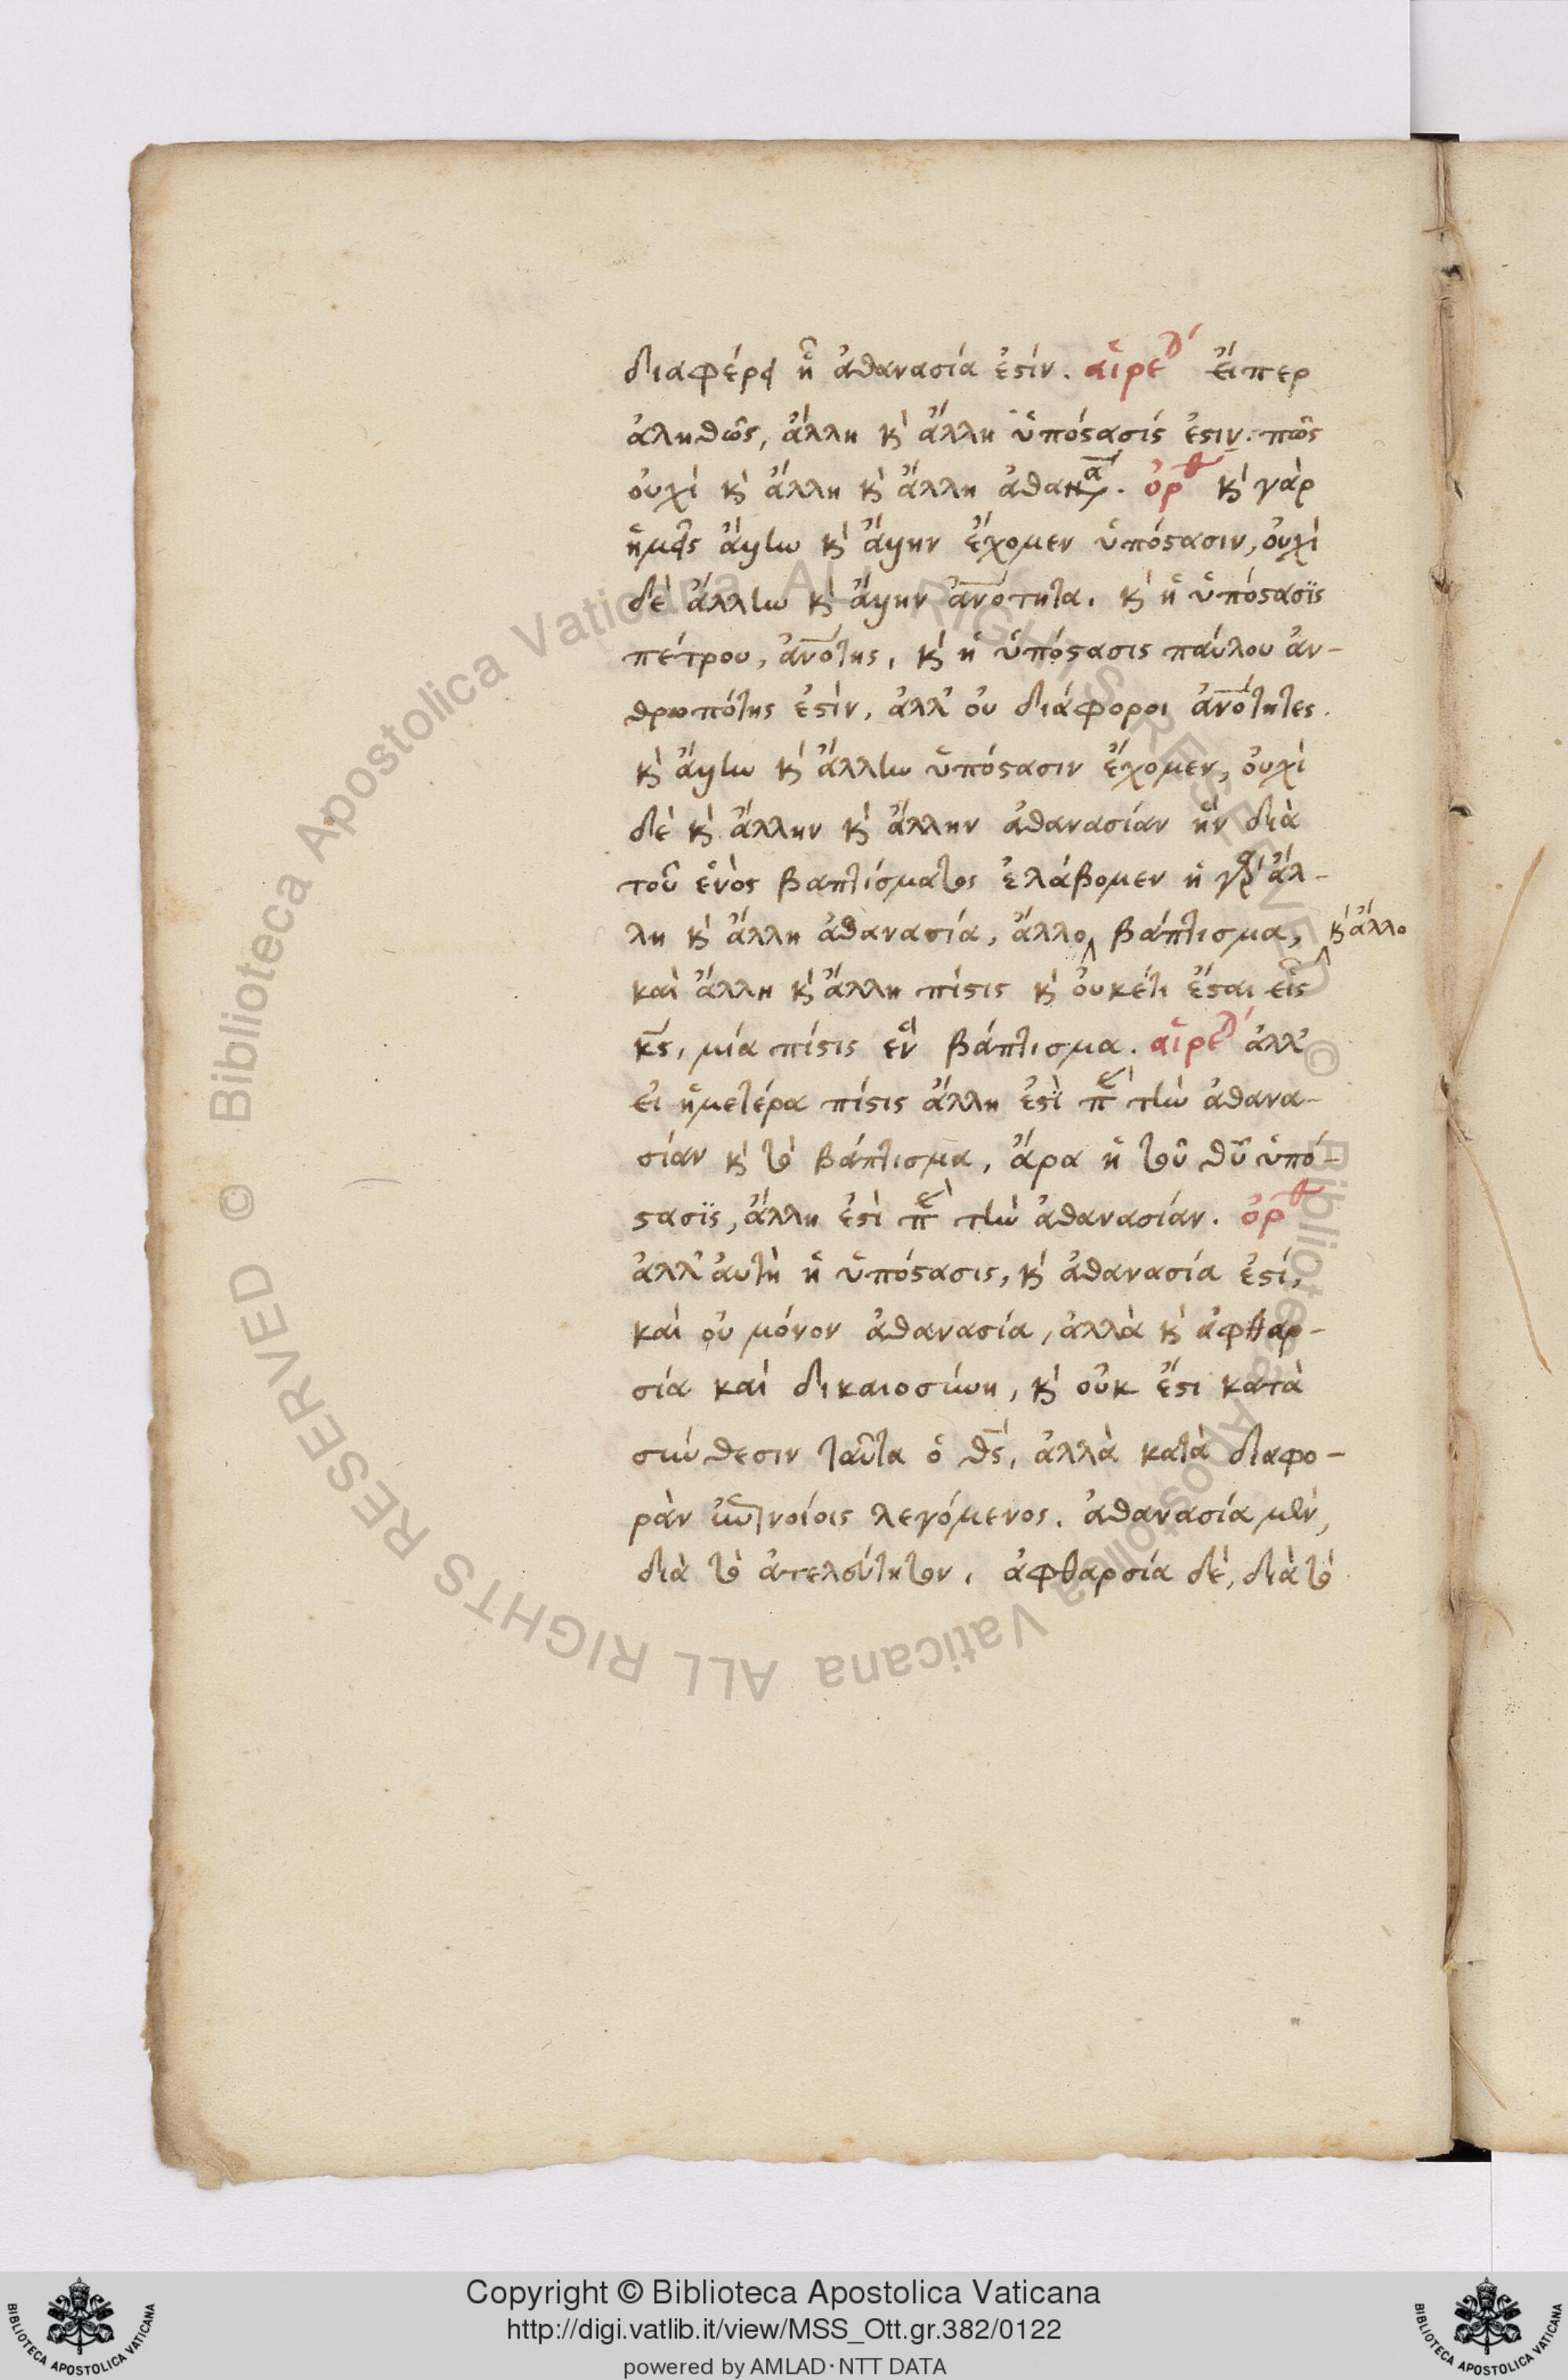 διαφέρει ἢ ἀθανασία ἐστίν. αἱρε εἴπερ
ἀληθῶς, ἄλλη κ̀ ἄλλη ὑπόστασίς ἐστιν. πῶς
οὐχὶ κ̀ ἄλλη κ̀ ἄλλη ἀθανα. ὀρθ κ̀ γὰρ
ἡμεῖς ἄλλην κ̀ ἄλλην ἔχομεν ὑπόστασιν, οὐχὶ
δὲ ἄλλην κ̀ ἄλλην ἀνότητα. κ̀ ἡ ὑπόστασϊς
πέτρου, ἀνότης, κ̀ ἡ ὑπόστασις παύλου ἀν-
θρωπότης ἐστὶν, ἀλλ' οὐ διάφοροι ἀνότητες.
κ̀ ἄλλην κ̀ ἄλλην ὑπόστασιν ἔχομεν, οὐχὶ
δὲ κ̀ ἄλλην κ̀ ἄλλην ἀθανασίαν ἣν διὰ
τοῦ ἑνὸς βαπτίσματος ἐλάβομεν ἢ γὰρ ἄλ-
λη κ̀ ἄλλη ἀθανασία, ἄλλο βάπτισμα, κ̀ ἄλλο
καὶ ἄλλη κ̀ ἄλλη πίστις κ̀ οὐκέτι ἔσται εἷς
κς, μία πίστις ἓν βάπτισμα. αἱρε ἀλλ'
εἰ ἡμετέρα πίστις ἄλλη ἐστὶ π τὴν ἀθανα-
σίαν κ̀ τὸ βάπτισμα, ἄρα ἡ τοῦ θῦ ὑπό-
στασϊς, ἄλλη ἐστὶ π τὴν ἀθανασίαν. ὀρθ
ἀλλ' αὐτὴ ἡ ὑπόστασις, κ̀ ἀθανασία ἐστί,
καὶ οὐ μόνον ἀθανασία, ἀλλὰ κ̀ ἀφθαρ-
σία καὶ δικαιοσύνη, κ̀ οὐκ ἔστι κατὰ
σύνθεσιν ταῦτα ὁ θς, ἀλλὰ κατὰ διαφο-
ρὰν λεγόμενος. ἀθανασία μὲν,
διὰ τὸ ἀτελεύτητον, ἀφθαρσία δὲ, διὰ τὸ
Copyright © Biblioteca Apostolica Vaticana
http://digi.vatlib.it/view/MSS_Ott.gr.382/0122
powered by AMLAD·NTT DATA
BIBLIOTECA APOSTOLICA VATICANA
BIBLIOTECA APOSTOLICA VATICANA
© Biblioteca Apostolica Vaticana ALL RIGHTS RESERVED
© Biblioteca Apostolica Vaticana ALL RIGHTS RESERVED